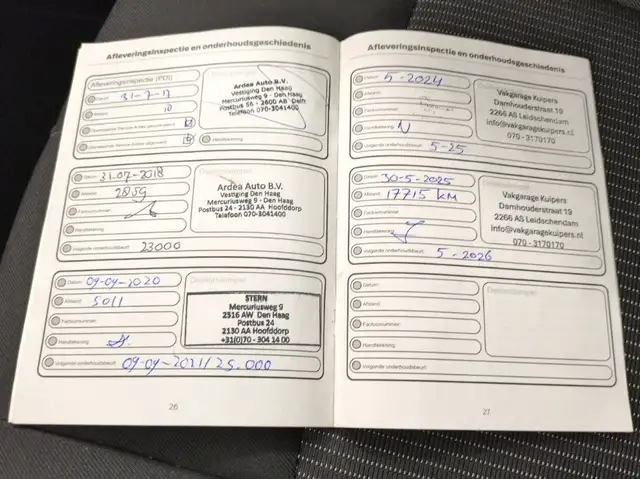 Afleveringsinspectie en onderhoudsgeschiedenis
Afleveringsinspectie (PDI)
Datum: 31-7-17
Afstand: 10
Handtekening:
Ardea Auto B.V.
Vestiging Den Haag
Mercuriusweg 9 - Den Haag
Postbus 56 - 2600 AB Delft
Telefoon 070-3041400
Datum: 31-07-2018
Afstand: 2859
Factuurnummer:
Handtekening:
Volgende onderhoudsbeurt: 23000
Ardea Auto B.V.
Vestiging Den Haag
Mercuriusweg 9 - Den Haag
Postbus 24 - 2130 AA Hoofddorp
Telefoon 070-3041400
Datum: 09-09-2020
Afstand: 5011
Factuurnummer:
Handtekening:
Volgende onderhoudsbeurt: 09-09-2021/25.000
STERN
Mercuriusweg 9
2516 AW Den Haag
Postbus 24
2130 AA Hoofddorp
+31(0)70 - 304 14 00
26
Afleveringsinspectie en onderhoudsgeschiedenis
Datum: 5-2024
Afstand:
Factuurnummer:
Handtekening:
Volgende onderhoudsbeurt: 5-25
Vakgarage Kuipers
Damhouderstraat 19
2266 AS Leidschendam
info@vakgaragekuipers.nl
070 - 3170170
Datum: 30-5-2025
Afstand: 17715 KM
Factuurnummer:
Handtekening:
Volgende onderhoudsbeurt: 5-2026
Vakgarage Kuipers
Damhouderstraat 19
2266 AS Leidschendam
info@vakgaragekuipers.nl
070 - 3170170
Datum:
Afstand:
Factuurnummer:
Handtekening:
Volgende onderhoudsbeurt:
Dealerstempel
27